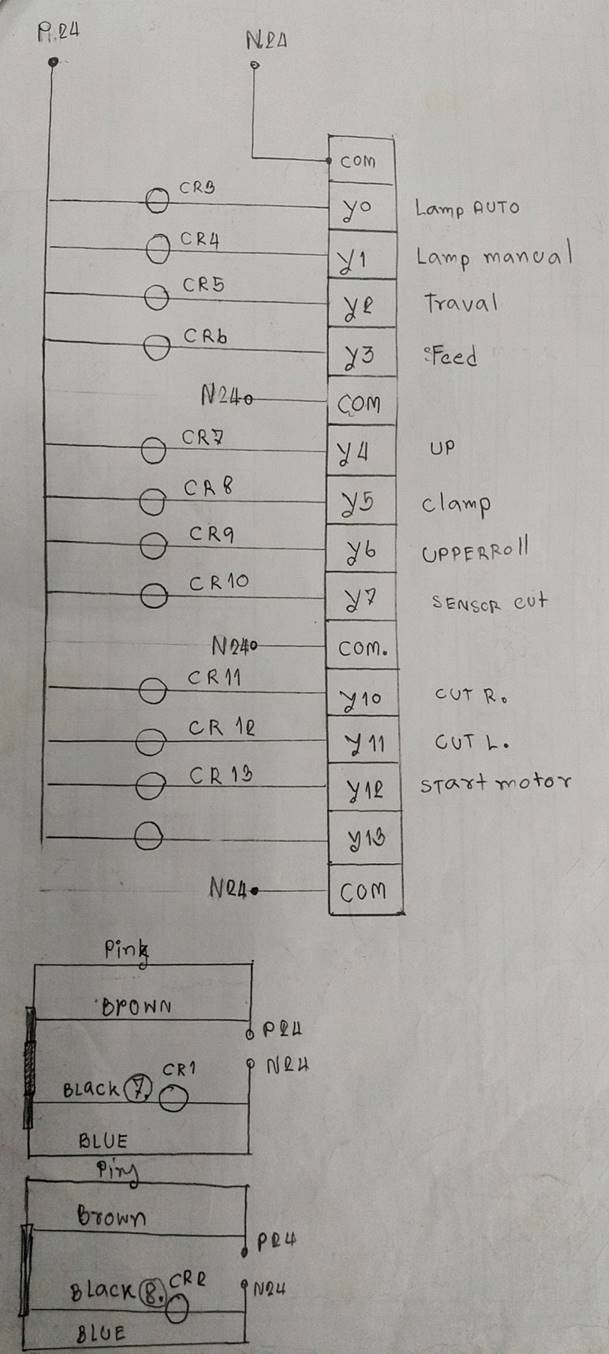 P.24 N24
COM
CR3 Y0 Lamp AUTO
CR4 Y1 Lamp manual
CR5 Y2 Traval
CR6 Y3 Feed
N24 COM
CR7 Y4 UP
CR8 Y5 clamp
CR9 Y6 UPPERRoll
CR10 Y7 SENSOR cut
N24 COM.
CR11 Y10 CUT R.
CR 12 Y11 CUT L.
CR13 Y12 start motor
Y13
N24 COM
Pink
BROWN
P24
CR1 N24
BLACK 7.
BLUE
Ping
Brown
P24
Black 8. CR2 N24
BLUE